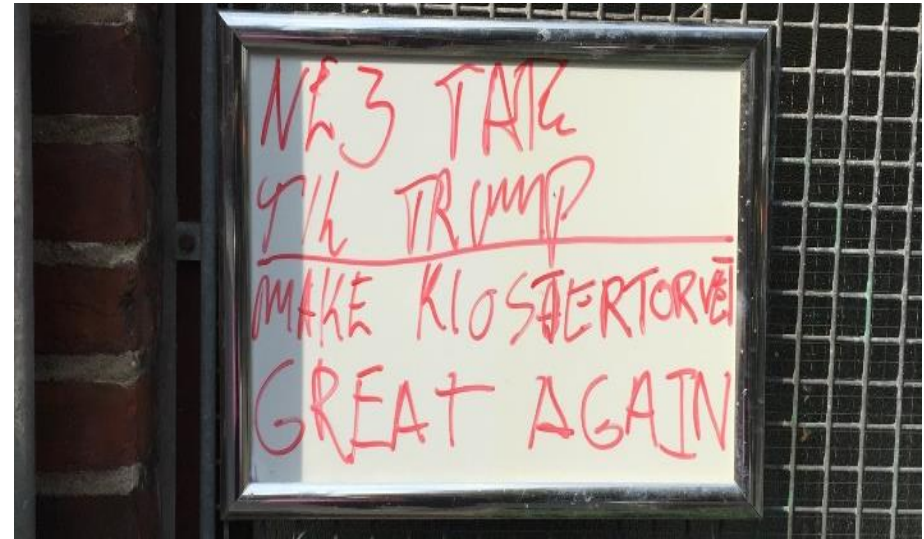 NEJ TAK
TIL TRUMP
MAKE KLOSTERTORVET
GREAT AGAIN